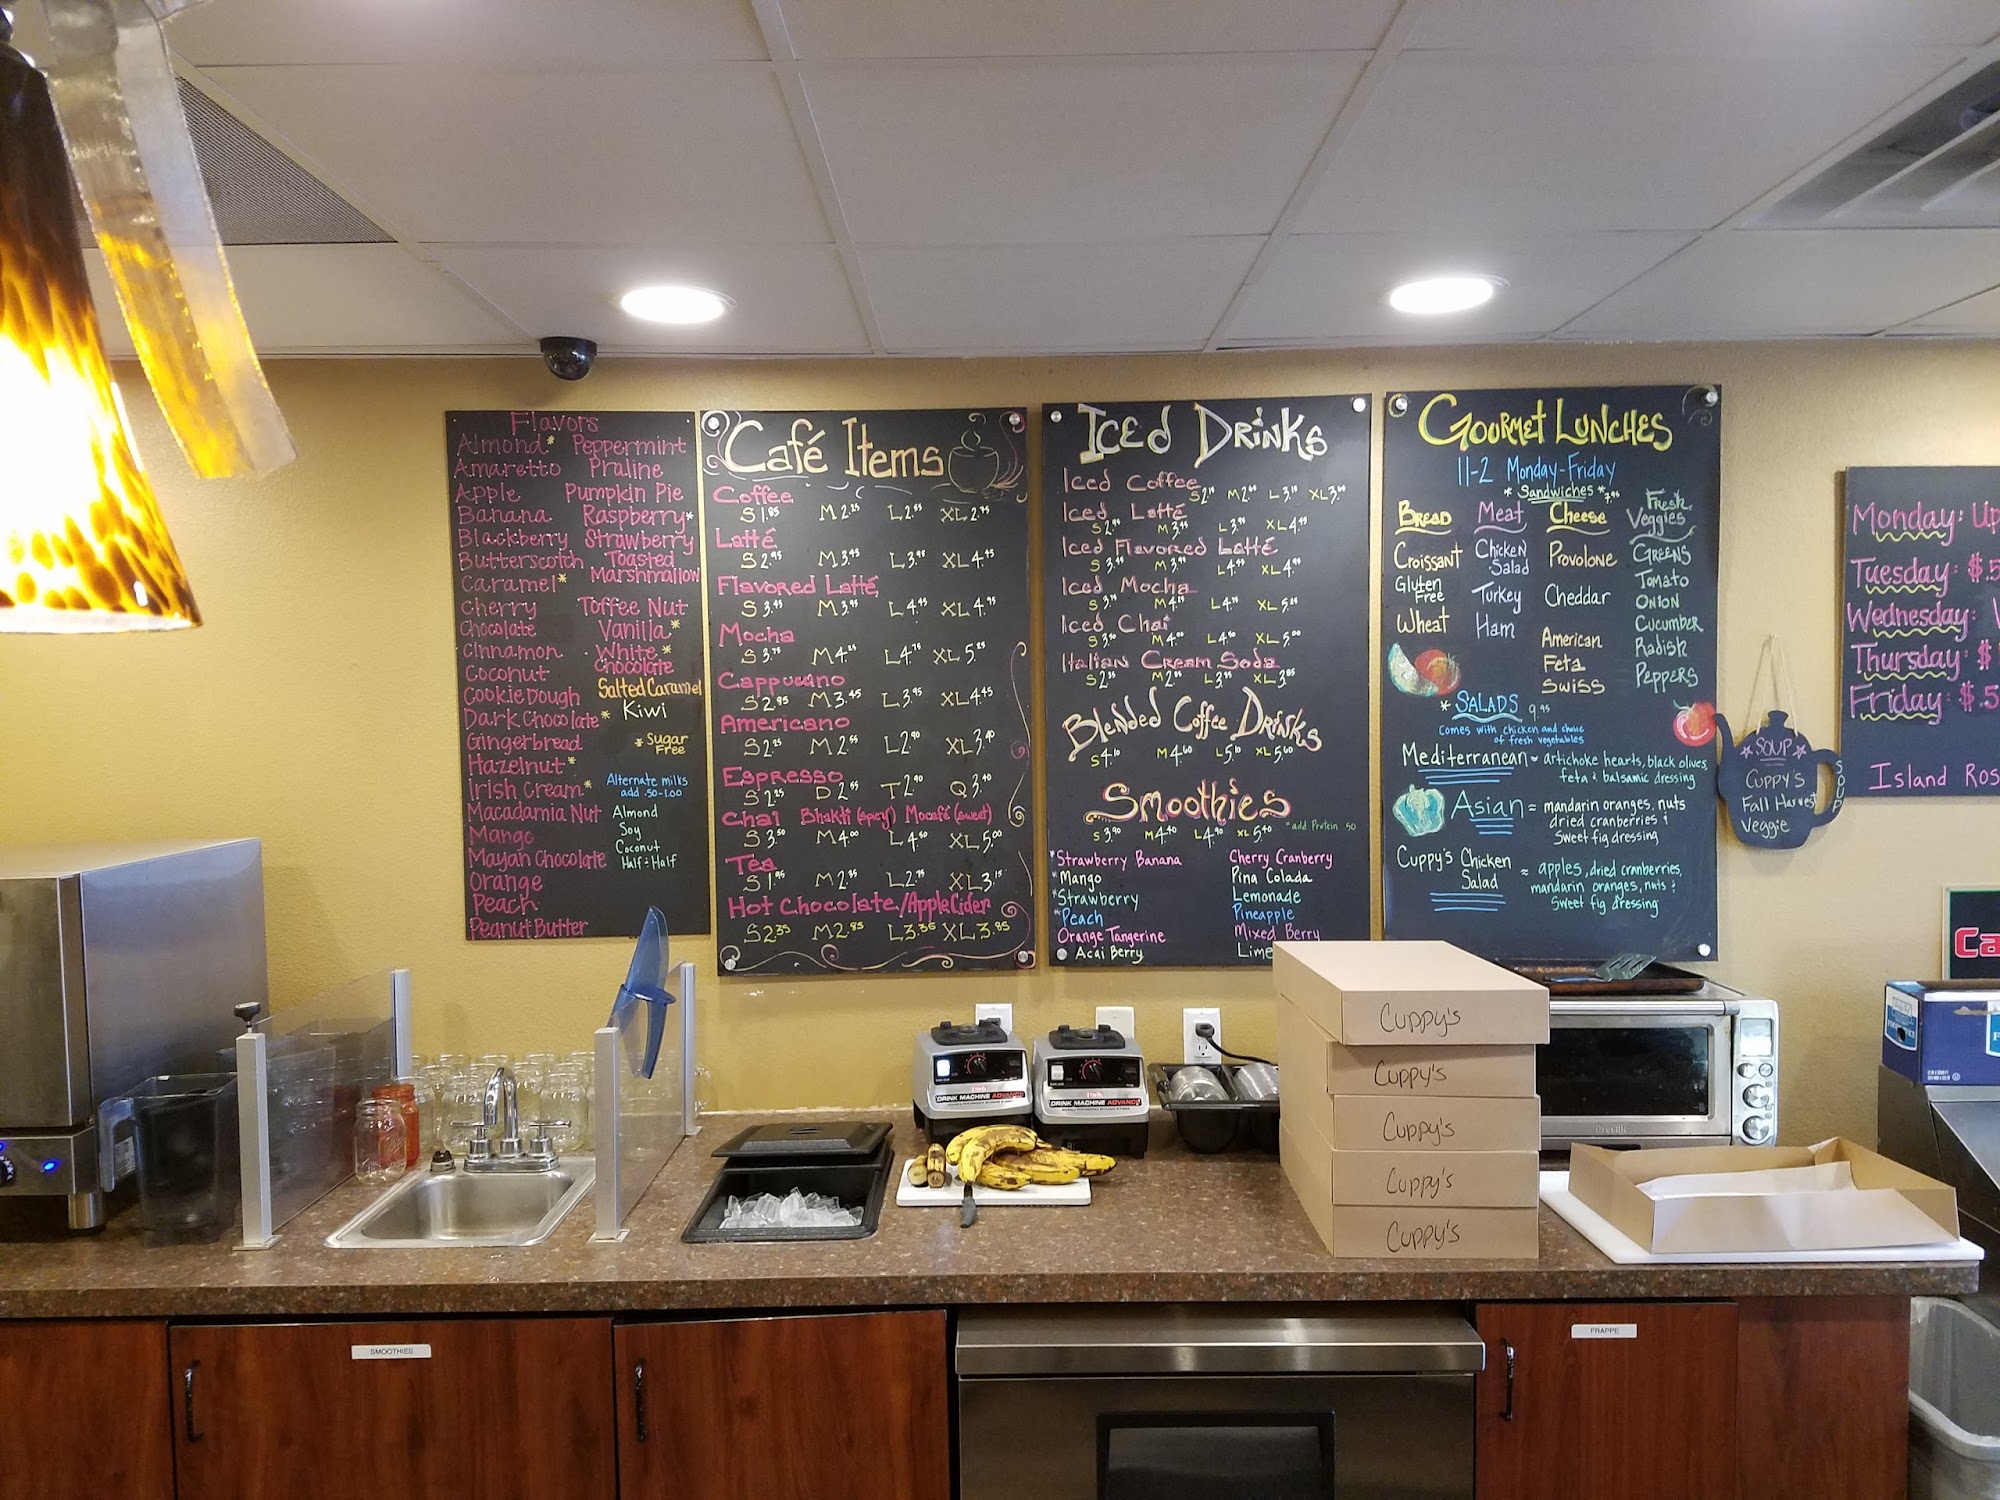 Flavors
Almond* Peppermint
Amaretto Praline
Apple Pumpkin Pie
Banana Raspberry*
Blackberry Strawberry
Butterscotch Toasted
Caramel* Marshmallow
Cherry Toffee Nut
Chocolate Vanilla*
Cinnamon White*
Coconut Chocolate
Cookie Dough Salted Caramel
Dark Chocolate* Kiwi
Gingerbread * Sugar
Free
Hazelnut*
Irish Cream* Alternate milks
add .50-1.00
Macadamia Nut Almond
Mango Soy
Mayan Chocolate Coconut
Half & Half
Orange
Peach
Peanut Butter
Café Items
Coffee
S 1.95 M 2.25 L 2.55 XL 2.75
Latté
S 2.95 M 3.45 L 3.95 XL 4.45
Flavored Latté
S 3.45 M 3.95 L 4.45 XL 4.95
Mocha
S 3.75 M 4.25 L 4.75 XL 5.25
Cappucino
S 2.95 M 3.45 L 3.95 XL 4.45
Americano
S 2.25 M 2.55 L 2.90 XL 3.40
Espresso
S 2.25 D 2.55 T 2.90 Q 3.40
Chai Bhakti (spicy) Mocafé (sweet)
S 3.50 M 4.00 L 4.50 XL 5.00
Tea
S 1.95 M 2.35 L 2.75 XL 3.15
Hot Chocolate/Apple Cider
S 2.35 M 2.85 L 3.35 XL 3.85
Iced Drinks
Iced Coffee
Iced Latté
Iced Flavored Latté
Iced Mocha
Iced Chai
S 3.50 M 4.00 L 4.50 XL 5.00
Italian Cream Soda
S 2.35 M 2.85 L 3.35 XL 3.85
Blended Coffee Drinks
S 4.10 M 4.60 L 5.10 XL 5.60
Smoothies
S 3.90 M 4.40 L 4.90 XL 5.40 *add Protein .50
*Strawberry Banana Cherry Cranberry
*Mango Pina Colada
*Strawberry Lemonade
*Peach Pineapple
Orange Tangerine Mixed Berry
Acai Berry Lime
Gourmet Lunches
11-2 Monday-Friday
* Sandwiches *
Bread Meat Cheese Fresh Veggies
Croissant Chicken Salad Provolone Greens
Gluten Free Turkey Cheddar Tomato
Onion
Wheat Ham American Cucumber
Feta Radish
Swiss Peppers
* Salads 9.95
Comes with chicken and choice
of fresh vegetables
Mediterranean ~ artichoke hearts, black olives,
feta & balsamic dressing
Asian = mandarin oranges, nuts
dried cranberries &
Sweet fig dressing
Cuppy's Chicken
Salad = apples, dried cranberries,
mandarin oranges, nuts &
Sweet fig dressing
Soup
Cuppy's
Fall Harvest
Veggie
SOUP
Monday: Up
Tuesday: $.5
Wednesday:
Thursday: $
Friday: $.5
Island Ros
Ca
DRINK MACHINE ADVANCE
DRINK MACHINE ADVANCE
Cuppy's
Cuppy's
Cuppy's
Cuppy's
Cuppy's
Breville
SMOOTHIES
FRAPPE